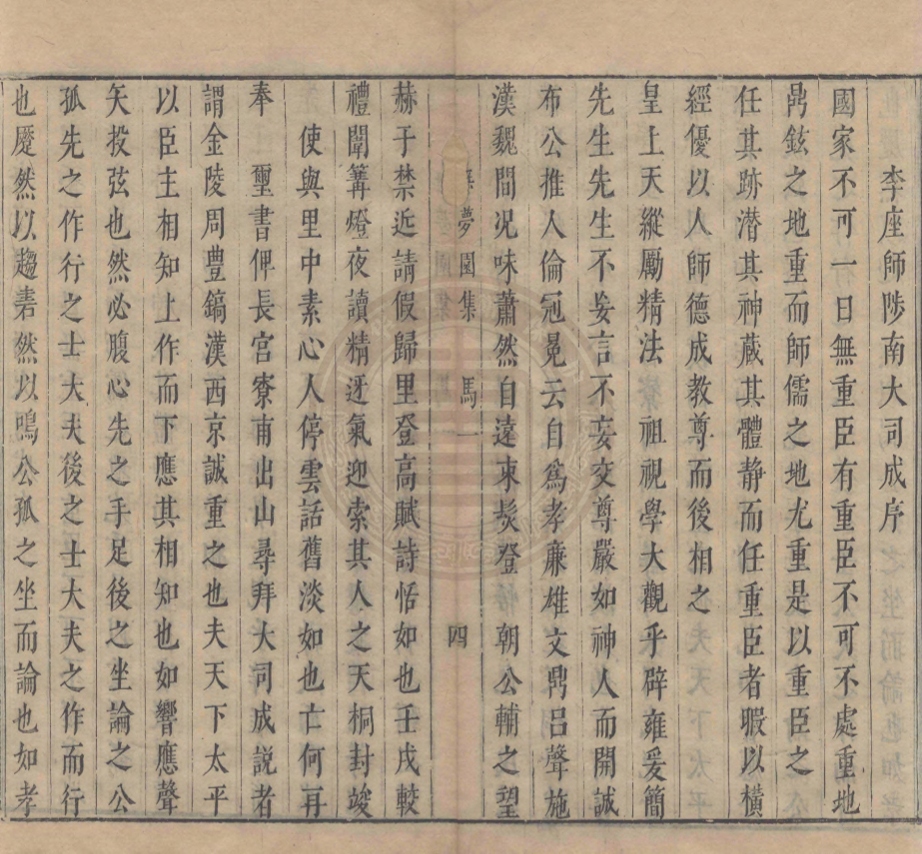 李座師陟南大司成序
國家不可一日無重臣有重臣不可不處重地
鼎鉉之地重而師儒之地尤重是以重臣之
任其跡潛其神蔵其體静而任重臣者暇以橫
經優以人師德成教尊而後相之
皇上天縱勵精法 祖視學大觀乎辟雍爰簡
先生先生不妄言不妄交尊嚴如神人而開誠
布公推人倫冠冕云自爲孝廉雄文鼎呂聲施
漢魏間况味蕭然自遠束髮登 朝公輔之望
夢園集 馬一 四
赫于禁近請假歸里登高賦詩恬如也壬戌較
禮闈篝燈夜讀精迓氣迎索其人之天桐封竣
使與里中素心人停雲話舊淡如也亡何再
奉 璽書俾長宮寮甫出山尋拜大司成説者
謂金陵周豊鎬漢西京誠重之也夫天下太平
以臣主相知上作而下應其相知也如響應聲
矢投弦也然必腹心先之手足後之坐論之公
孤先之作行之士大夫後之士大夫之作而行
也蹷然以趨砉然以鳴公孤之坐而論也如孝